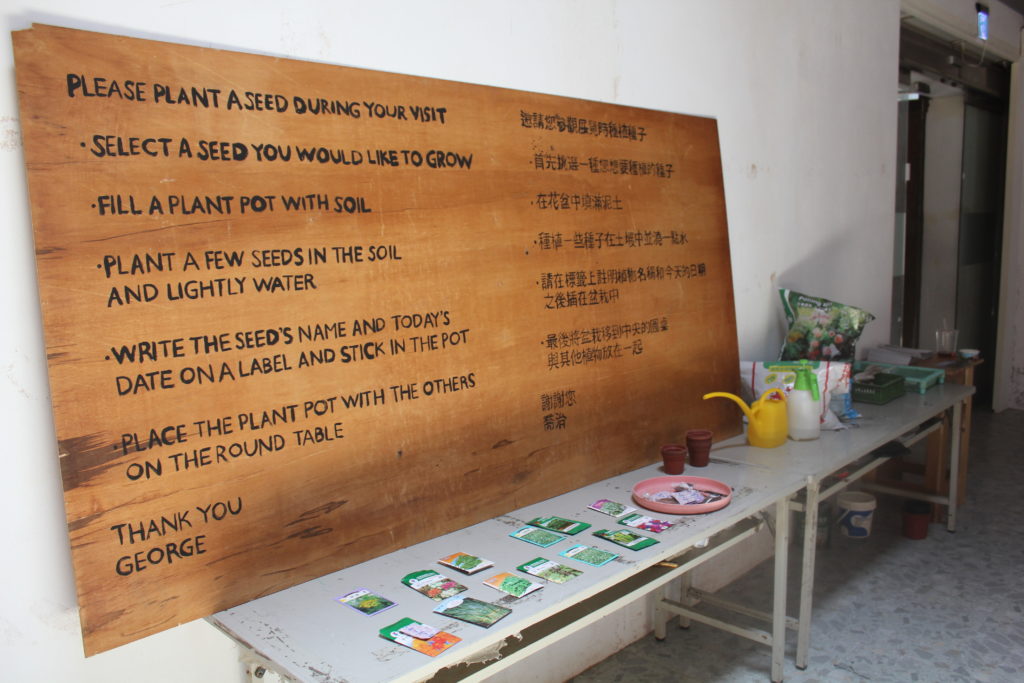 PLEASE PLANT A SEED DURING YOUR VISIT
· SELECT A SEED YOU WOULD LIKE TO GROW
· FILL A PLANT POT WITH SOIL
· PLANT A FEW SEEDS IN THE SOIL
AND LIGHTLY WATER
· WRITE THE SEED'S NAME AND TODAY'S
DATE ON A LABEL AND STICK IN THE POT
· PLACE THE PLANT POT WITH THE OTHERS
ON THE ROUND TABLE
THANK YOU
GEORGE
邀請您參觀展覽時種植種子
· 首先挑選一種您想要種植的種子
· 在花盆中填滿泥土
· 種植一些種子在土壤中並澆一點水
· 請在標籤上註明植物名稱和今天的日期
之後插在盆栽中
· 最後將盆栽移到中央的圓桌
與其他植物放在一起
謝謝您
喬治